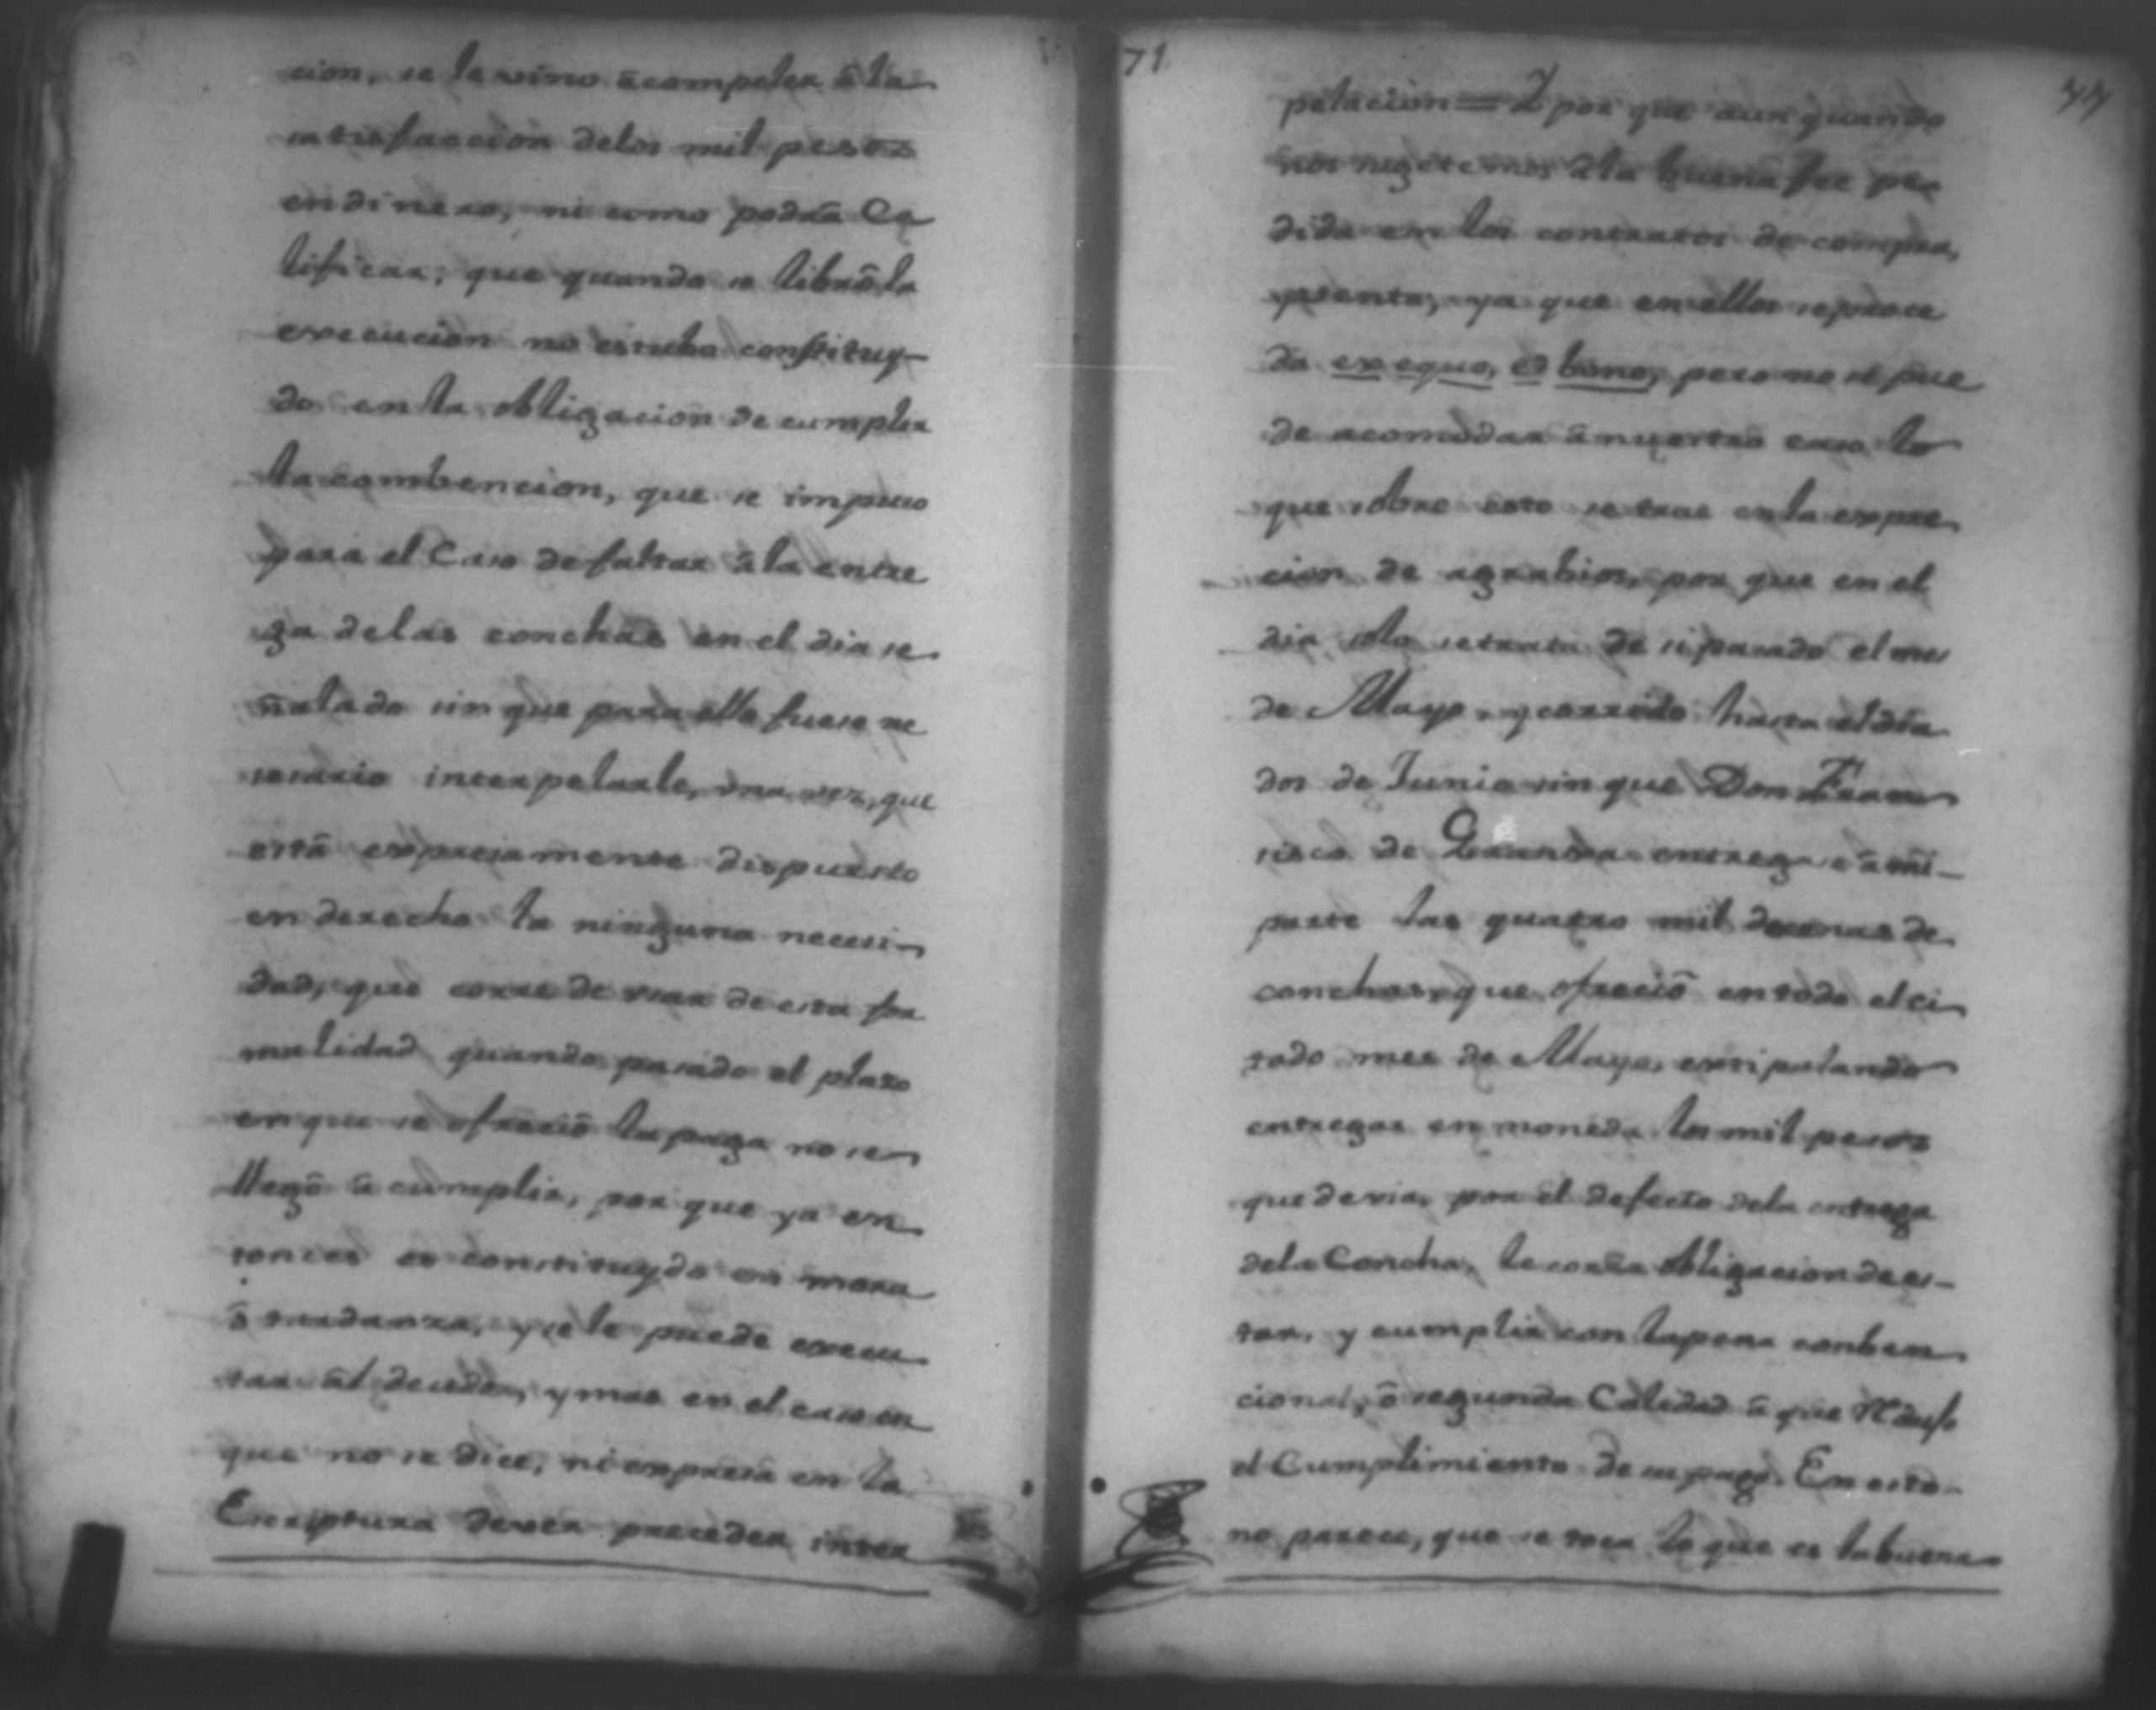 cion, se le vino ã compeler ã la
satisfaccion delos mil pesos
en dinero, ni como podrã Ca
lificar, que quando se librõ la
execucion no estubo constituy-
do en la obligacion de cumplir
la combencion, que se impuso
para el Caso de faltar ã la entre
ga delas conchas en el dia se
ñalado sin que para ello fuese ne
sesario interpelarle, una vez, que
estã expresamente dispuesto
en derecho la ninguna necesi-
dad, que corre de usar de esta for
malidad quando pasado el plazo
en que se ofreciõ la paga no se
llegõ ã cumplir, por que ya en
tonces es constituydo en mora
õ tardanza, y se le puede execu
tar ãl deudor, y mas en el caso en
que no se dice, ni expresa en la
Escriptura dever preceder inter
71
77
pelacion = Y por que aun quando
nos sugetemos ã la buena fee pe
dida en los contratos de compra,
y venta, ya que en ellos se proce
da ex equo, et bono, pero no se pue
de acomodar ã nuestro caso lo
que sobre esto se trae en la expre
cion de agrabios, por que en el
dia solo se trata de si pasado el mes
de Mayo, y corrido hasta el dia
dos de Junio sin que Don Fran
sisco de entregase ã mi
parte las quatro mil docenas de
conchas, que ofreciõ en todo el ci
tado mes de Mayo, estipulando
entregar en moneda los mil pesos
que devia, por el defecto dela entrega
dela Concha, le corria obligacion de es-
tar, y cumplir con la pena conben
cional, õ segunda Calidad ã que redujo
el Cumplimiento de su pago. En esto
no parece, que se toca lo que es la buena